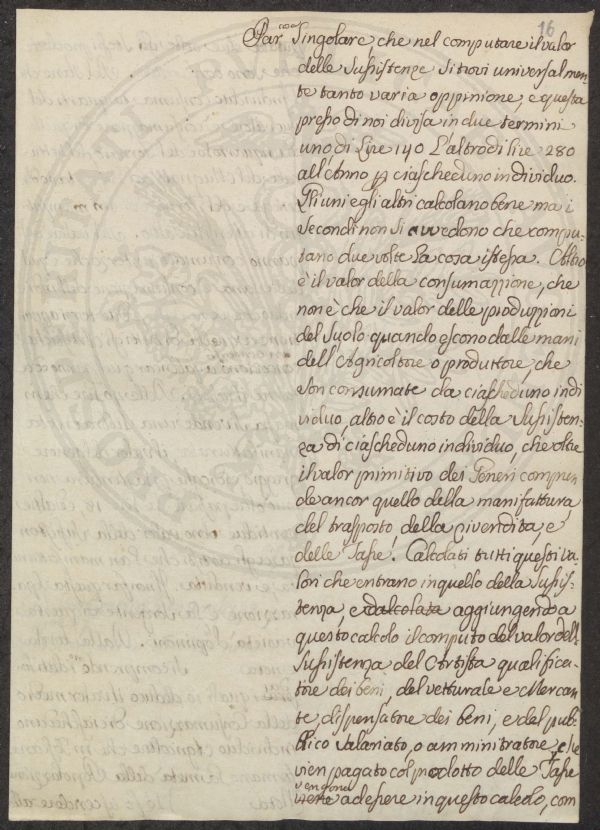 16
cosa
Par Singolare, che nel computare il valor
delle Sussistenze si trovi universalmen
te tanto varia oppinione, e questa
presso di noi divisa in due termini
uno di Lire 140 L'altro di lire 280
all'Anno p ciascheduno individuo.
Gli uni e gli altri calcolano bene ma i
secondi non si avvedono che compu-
tano due volte la cosa istessa. Altro
è il valor della consumazione, che
non è che il valor delle produzzioni
del Suolo quando escono dalle mani
dell'Agricoltore o produttore, che
son consumate da ciascheduno indi
viduo, altro è il costo della Sussisten-
za di ciascheduno individuo, che oltre
il valor primitivo dei Generi compren
de ancor quello della manifattura
del trasposto, della rivendita, e
delle Tasse. Calcolati tutti questi va-
lori che entrano in quello della Sussis-
tenza, e calcolata aggiungendo a
questo calcolo il computo del valor dell
Sussistenza del Artista qualifica-
tore dei beni, del vetturale e Mercan
te, dispensatore dei beni, e del pub-
blico Salariato, o amministratore che
vien pagato col prodotto delle Tasse
vengono
a essere in questo calcolo, com